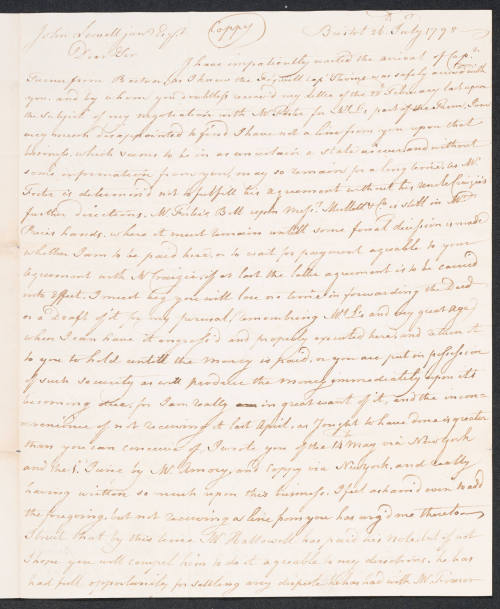 John Lowell junr. Esqr. (Coppy) Bristol 26th July 1798
Dear Sir
I have impatiently waited the arrival of Capn.
from Boston, as I knew the Capn. was safely arrived with
you, and by whom you doubtless received my letter of the 22d February last upon
the subject of my negotiation with Mr. Foster for Mr. L's part of the Farm, I am
very much disappointed to find I have not a line from you upon that
business, which seems to be in as uncertain a state as ever, and without
some information from you, may so remain for a long time, as Mr.
Foster is determin'd not to fulfill his agreement without his Uncle Craigie's
further directions. Mr. Bill upon Messrs. & Co. is still in Mr.
hands, where it must remain untill some final decision is made
whether I am to be paid here, or to wait for payment agreable to your
Agreement with Mr. Craigie, if at last the latter agreement is to be carried
into Effect, I must beg you will lose no time in forwarding the Deed
or a draft of it for my perusal, (remembring Mr. L's and my great age)
when I can have it engross'd and properly executed here, and return it
to you to hold untill the money is paid, or you are put in possession
of such security as will produce the money immediately upon its
becoming due, for I am really in great want of it, and the incon-
venience of not receiving it last April, as I ought to have done is greater
than you can conceive of. I wrote you of the 14th May via New York
and the 1st. June by Mr. Amory, and Coppy via New York, and really
having written so much upon this business, I feel asham'd even to add
the foregoing, but not receiving a line from you has urg'd me thereto
I trust that by this time Mr. Hallowell has paid his note, but if not
I hope you will compel him to do it agreable to my directions, he has
had full opportunity for settling any dispute he has had with Mr.